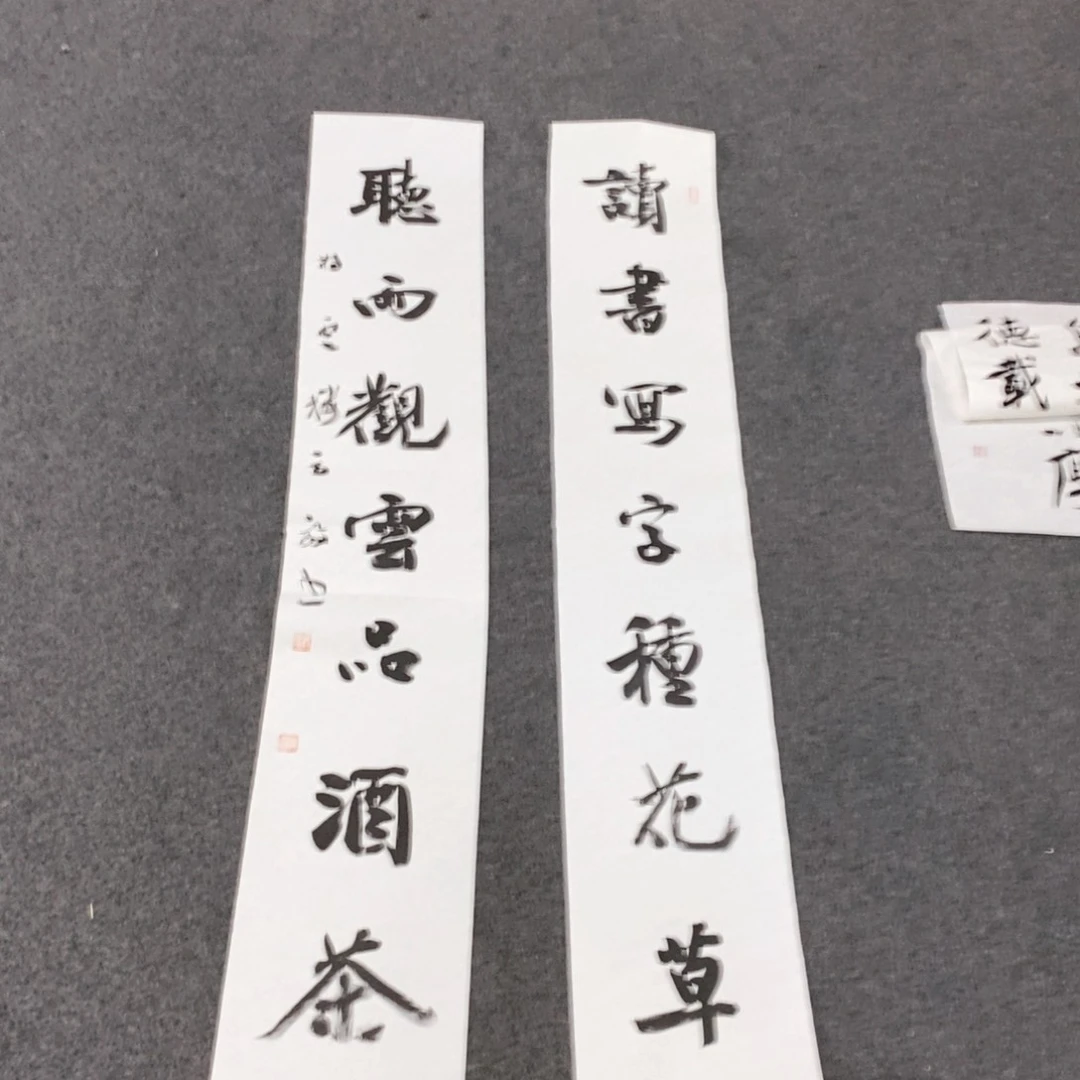 讀書寫字種花草
聽雨觀雲品酒茶
德載
厚